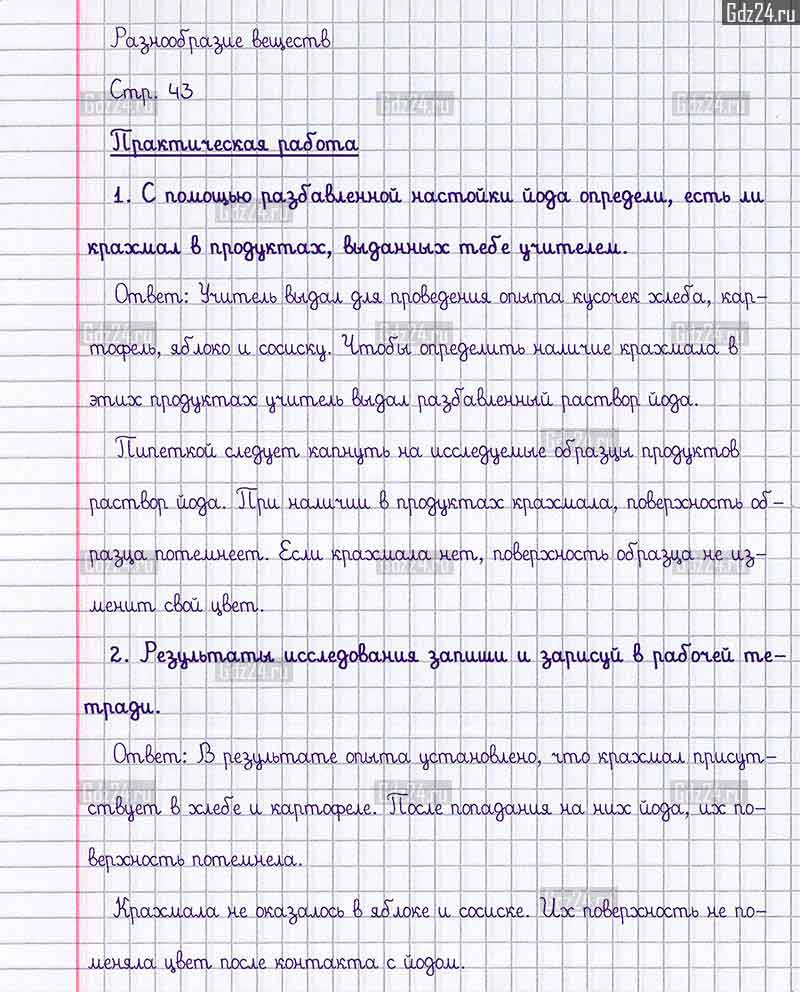 Gdz24.ru
Разнообразие веществ
Стр. 43
Практическая работа
1. С помощью разбавленной настойки йода определи, есть ли
крахмал в продуктах, выданных тебе учителем.
Ответ: Учитель выдал для проведения опыта кусочек хлеба, кар-
тофель, яблоко и сосиску. Чтобы определить наличие крахмала в
этих продуктах учитель выдал разбавленный раствор йода.
Пипеткой следует капнуть на исследуемые образцы продуктов
раствор йода. При наличии в продуктах крахмала, поверхность об-
разца потемнеет. Если крахмала нет, поверхность образца не из-
менит свой цвет.
2. Результаты исследования запиши и зарисуй в рабочей те-
тради.
Ответ: В результате опыта установлено, что крахмал присут-
ствует в хлебе и картофеле. После попадания на них йода, их по-
верхность потемнела.
Крахмала не оказалось в яблоке и сосиске. Их поверхность не по-
меняла цвет после контакта с йодом.